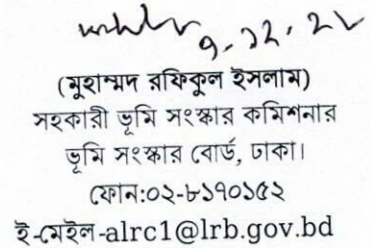 (মুহাম্মদ রফিকুল ইসলাম)
সহকারী ভূমি সংস্কার কমিশনার
ভূমি সংস্কার বোর্ড, ঢাকা।
ফোন:০২-৮১৭০১৫২
ই-মেইল-alrc1@lrb.gov.bd